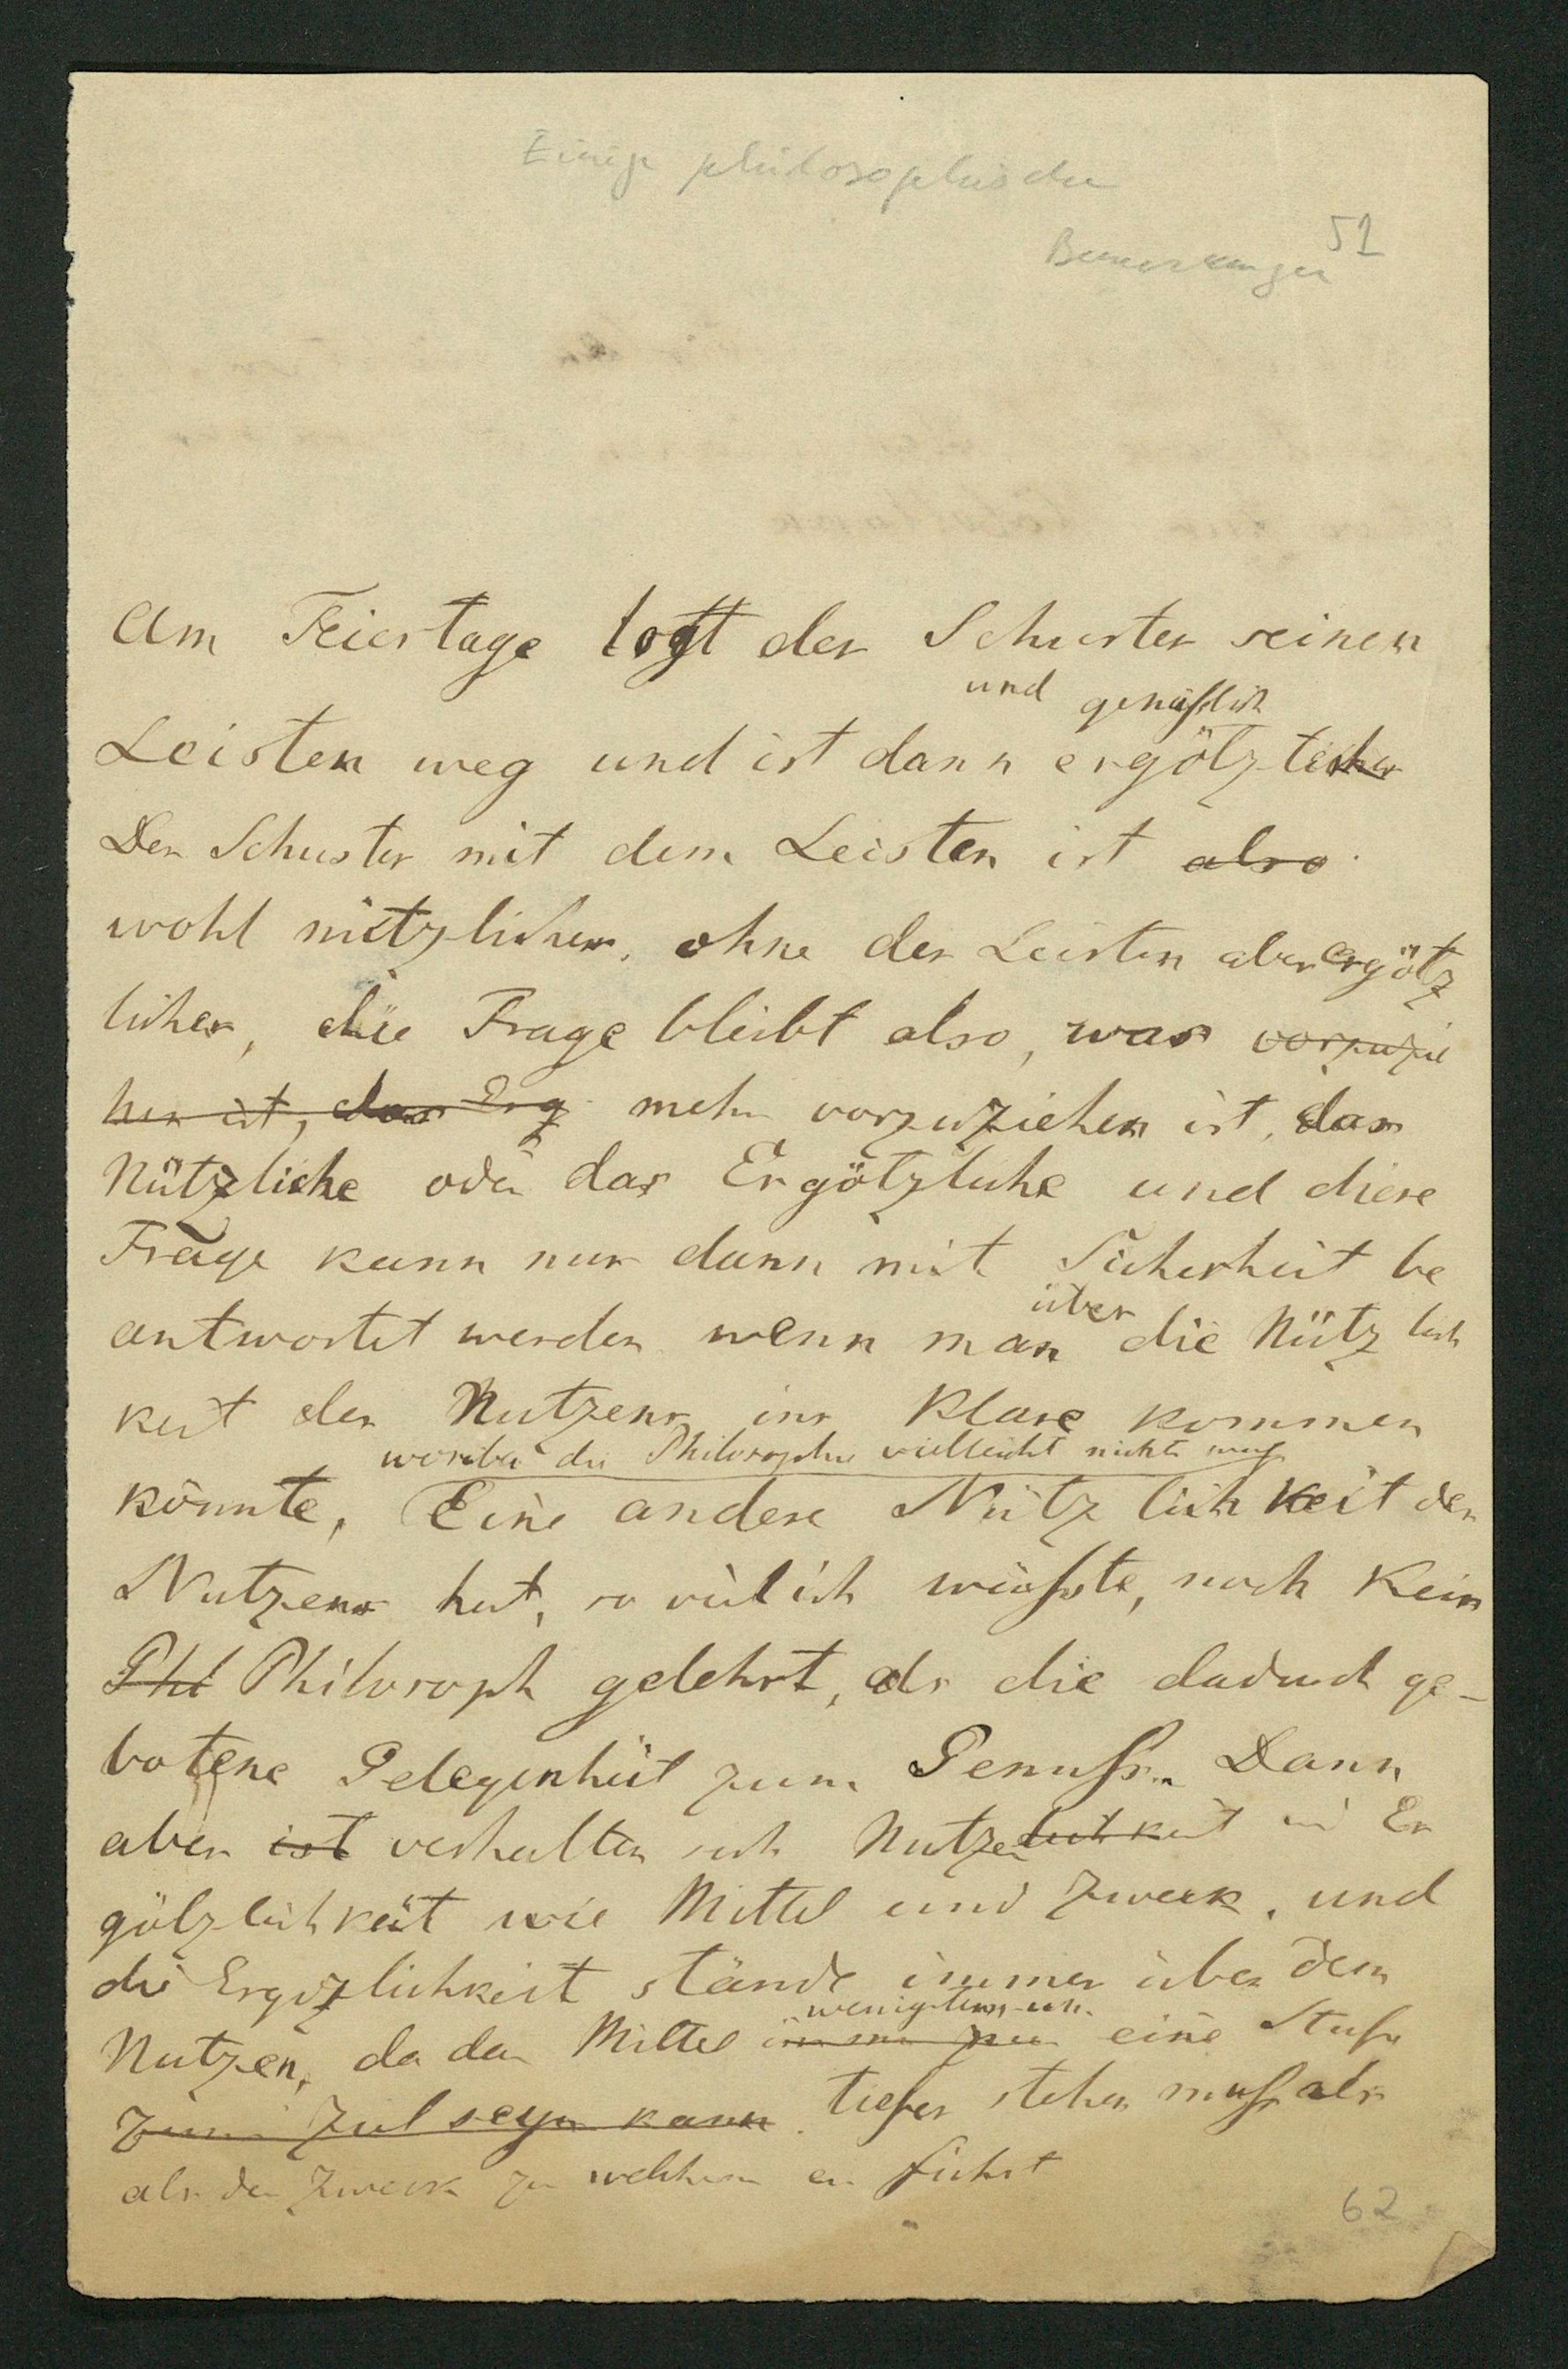 Einige philosophische
51
Bemerkungen
Am Feiertage legt der Schuster seinen
und genüßlich
Leisten weg und ist dann ergötzlicher
Der Schuster mit dem Leisten ist also
wohl nützlicher, ohne den Leisten aber ergötz
licher, die Frage bleibt also, was vorzuzie
hen ist, das Erg mehr vorzuziehen ist, das
Nützliche oder das Ergötzliche und diese
Frage kann nur dann mit Sicherheit be
antwortet werden wenn man über die Nützlich
keit des Nutzens ins Klare kommen
worüber die Philosophie vielleicht nichts weiß
könnte, Eine andere Nützlichkeit des
Nutzens hat, so viel ich wüßte, noch kein
Phil Philosoph gelehrt, als die dadurch ge-
botene Gelegenheit zum Genuße. Dann
aber ist verhalten sich Nutzen lichkeit und Er
götzlichkeit wie Mittel und Zweck, und
die Ergötzlichkeit stände immer über dem
wenigstens um
Nutzen, da das Mittel immer nur eine Stufe
zum Ziel seyn kann tiefer stehen muß als
als der Zweck zu welchem er führt
62